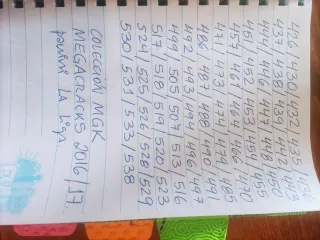 426/430/433/435/436
437/438/439/442/443
444/446/447/448/450
451/452/453/454/455
457/461/464/466/470
471/473/474/479/485
486/487/488/490/491
492/493/494/496/497
499/505/507/513/516
517/518/519/520/523
524/525/526/528/529
530/531/533/538
COLECCION MGK
MEGACRACKS 2016/17
panini LA liga